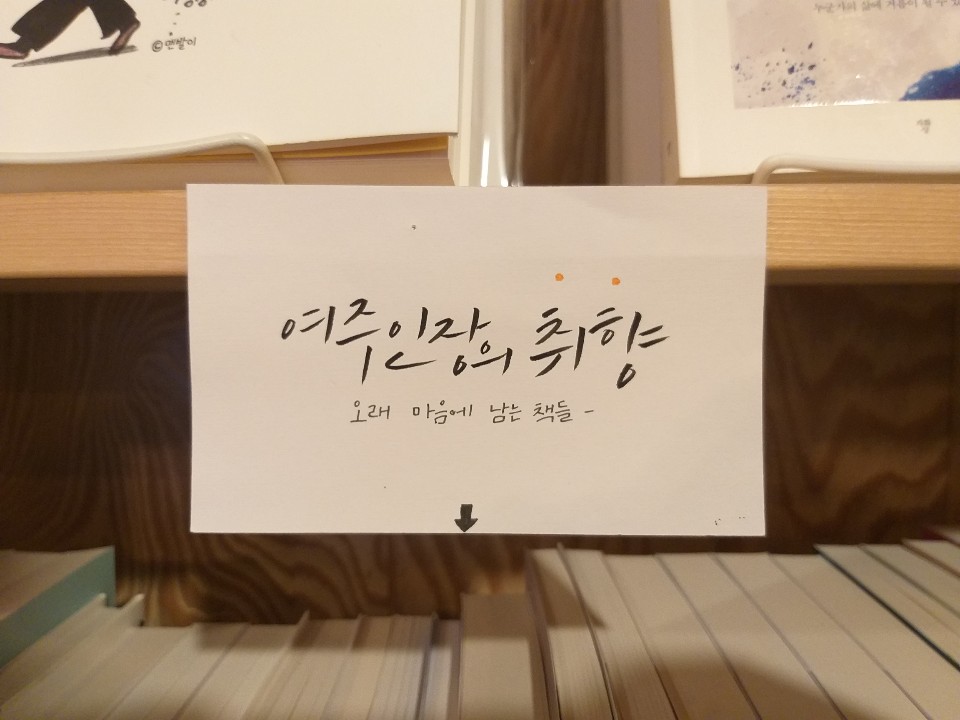 ©맨발이
여주인장의 취향
오래 마음에 남는 책들 -